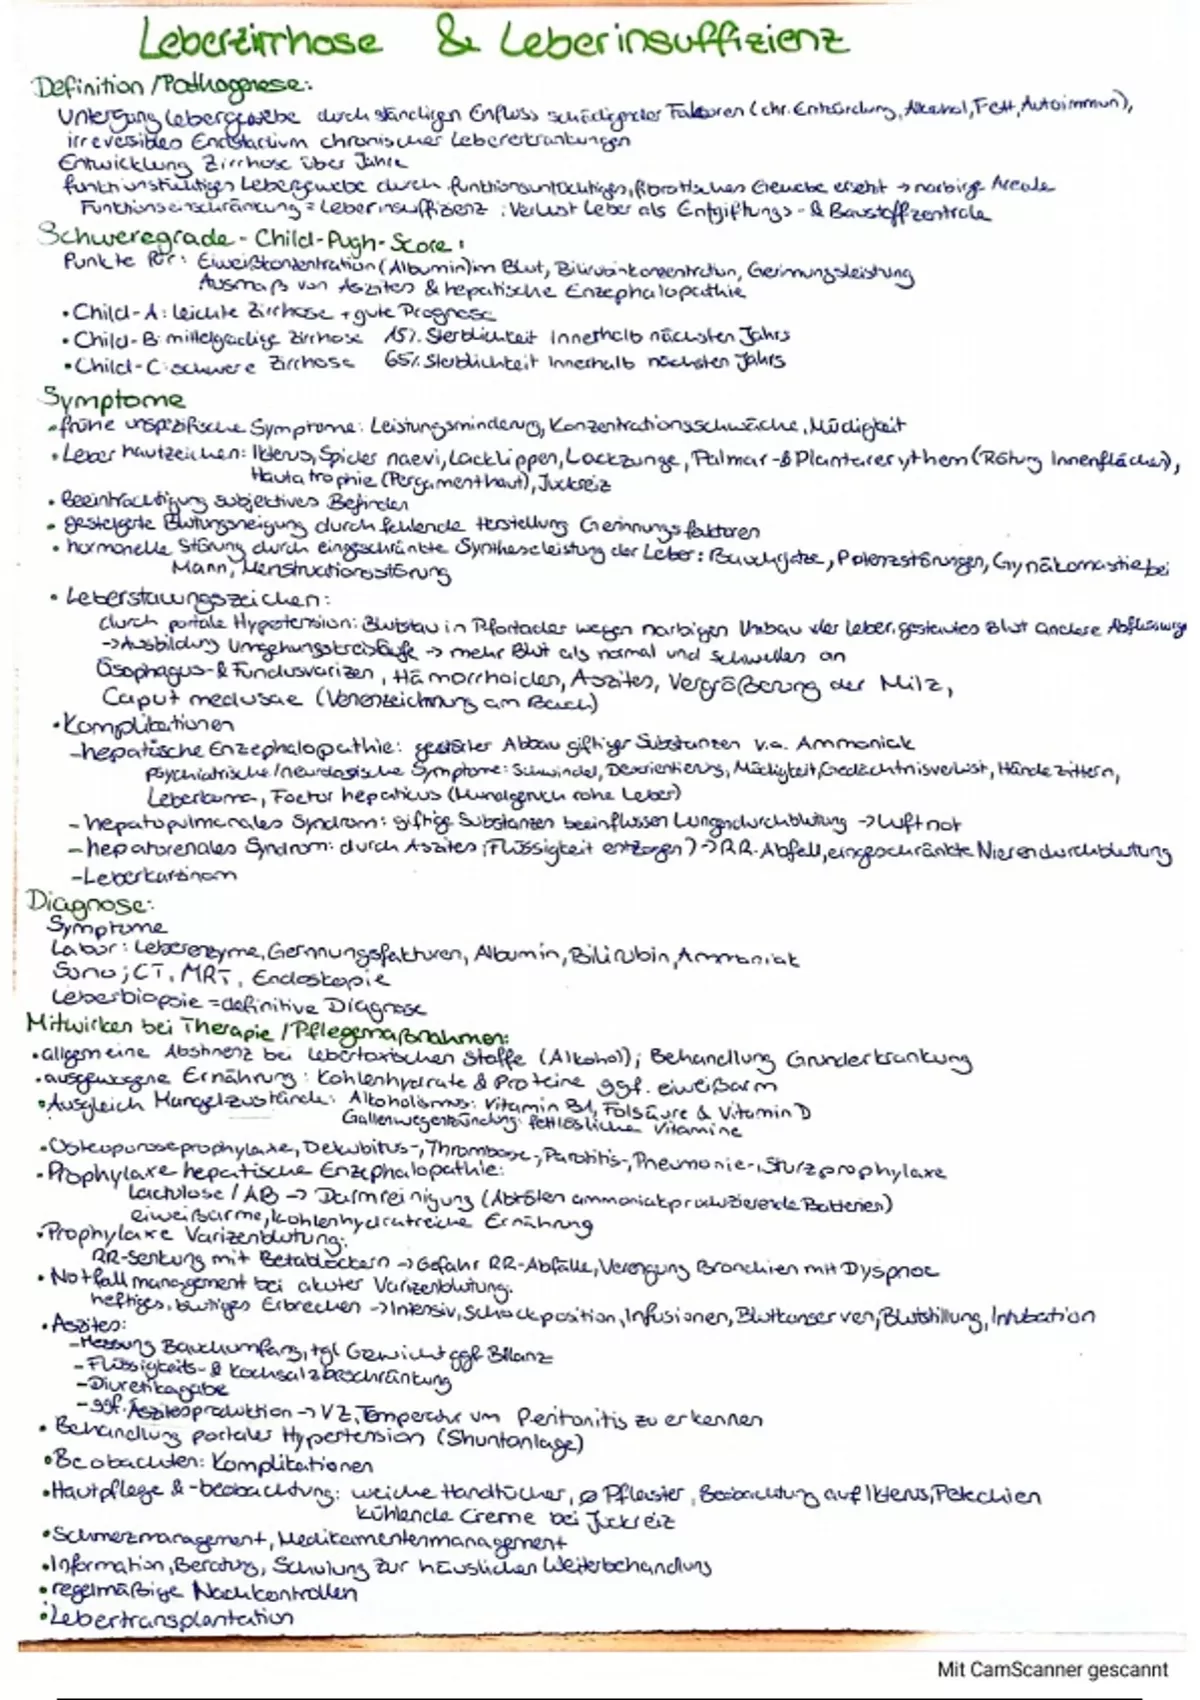 Leberzirrhose & Leberinsuffizienz
Definition/Pathogenese:
Untergang Lebergewebe durch ständigen Einfluss schädigender Faktoren (chr. Entzündung, Alkohol, Fett, Autoimmun),
irreversibles Endstadium chronischer Lebererkrankungen
Entwicklung Zirrhose über Jahre
funktionstüchtiges Lebergewebe durch funktionsuntüchtiges, fibrotisches Gewebe ersetzt → narbige Areale
Funktionseinschränkung = Leberinsuffizienz : Verlust Leber als Entgiftungs- & Baustoffzentrale
Schweregrade - Child-Pugh-Score:
Punkte für: Eiweißkonzentration (Albumin) im Blut, Bilirubinkonzentration, Gerinnungsleistung
Ausmaß von Aszites & hepatische Enzephalopathie
• Child-A: leichte Zirrhose + gute Prognose
• Child-B: mittelgradige Zirrhose 15% Sterblichkeit innerhalb nächsten Jahrs
• Child-C: schwere Zirrhose 65% Sterblichkeit innerhalb nächsten Jahrs
Symptome
• frühe unspezifische Symptome: Leistungsminderung, Konzentrationsschwäche, Müdigkeit
• Leberhautzeichen: Ikterus, Spider naevi, Lacklippen, Lackzunge, Palmar- & Plantarerythem (Rötung Innenflächen),
Hautatrophie (Pergamenthaut), Juckreiz
• Beeinträchtigung subjektives Befinden
• gesteigerte Blutungsneigung durch fehlende Herstellung Gerinnungsfaktoren
• hormonelle Störung durch eingeschränkte Syntheseleistung der Leber: Bauchglatze, Potenzstörungen, Gynäkomastie bei
Mann, Menstruationsstörung
• Leberstauungszeichen:
durch portale Hypertension: Blutstau in Pfortader wegen narbigen Umbau der Leber, gestautes Blut andere Abflusswege
→ Ausbildung Umgehungskreisläufe → mehr Blut als normal und schwellen an
Ösophagus- & Fundusvarizen, Hämorrhoiden, Aszites, Vergrößerung der Milz,
Caput medusae (Venenzeichnung am Bauch)
• Komplikationen
- hepatische Enzephalopathie: gestörter Abbau giftiger Substanzen v.a. Ammoniak
psychiatrische/neurologische Symptome: Schwindel, Desorientierung, Müdigkeit, Gedächtnisverlust, Hände zittern,
Leberkoma, Foetor hepaticus (Mundgeruch rohe Leber)
- hepatopulmonales Syndrom: giftige Substanzen beeinflussen Lungendurchblutung → Luftnot
- hepatorenales Syndrom: durch Aszites (Flüssigkeit entzogen) → RR-Abfall, eingeschränkte Nierendurchblutung
- Leberkarzinom
Diagnose:
Symptome
Labor: Leberenzyme, Gerinnungsfakturen, Albumin, Bilirubin, Ammoniak
Sono; CT, MRT, Endoskopie
Leberbiopsie = definitive Diagnose
Mitwirken bei Therapie/Pflegemaßnahmen:
• allgemeine Abstinenz bei lebertoxischen Stoffe (Alkohol); Behandlung Grunderkrankung
• ausgewogene Ernährung: Kohlenhydrate & Proteine ggf. eiweißarm
• Ausgleich Mangelzustände: Alkoholismus: Vitamin B1, Folsäure & Vitamin D
Gallenwegentzündung: fettlösliche Vitamine
• Osteoporoseprophylaxe, Dekubitus-, Thrombose-, Parotitis-, Pneumonie-, Sturzprophylaxe
• Prophylaxe hepatische Enzephalopathie:
Lactulose/AB → Darmreinigung (Abtöten ammoniakproduzierende Bakterien)
eiweißarme, kohlenhydratreiche Ernährung
• Prophylaxe Varizenblutung:
RR-Senkung mit Betablockern → Gefahr RR-Abfälle, Verengung Bronchien mit Dyspnoe
• Notfallmanagement bei akuter Varizenblutung:
heftiges, blutiges Erbrechen → Intensiv, Schockposition, Infusionen, Blutkonserven, Blutstillung, Intubation
• Aszites:
- Messung Bauchumfang, tgl Gewicht ggf Bilanz
- Flüssigkeits- & Kochsalzbeschränkung
- Diuretikagabe
- ggf. Aszites → VZ, Temperatur um Peritonitis zu erkennen
• Behandlung portaler Hypertension (Shuntanlage)
• Beobachten: Komplikationen
• Hautpflege & -beobachtung: weiche Handtücher, Ø Pflaster, Beobachtung auf Ikterus, Petechien
kühlende Creme bei Juckreiz
• Schmerzmanagement, Medikamentenmanagement
• Information, Beratung, Schulung zur häuslichen Weiterbehandlung
• regelmäßige Nachkontrollen
• Lebertransplantation
Mit CamScanner gescannt